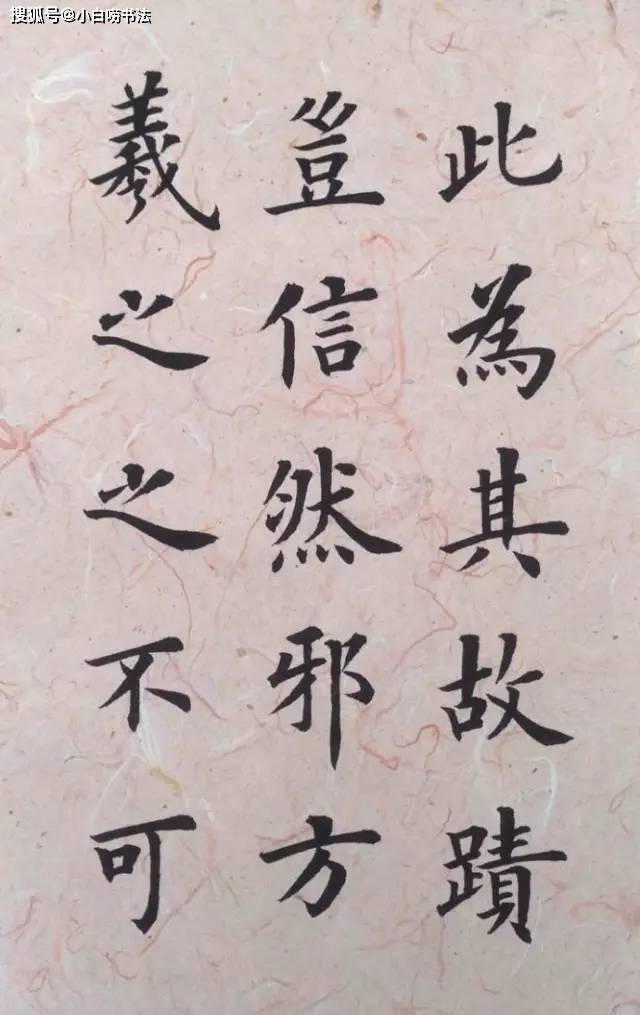 搜狐号@小白唠书法
此為其故蹟
豈信然邪方
羲之之不可